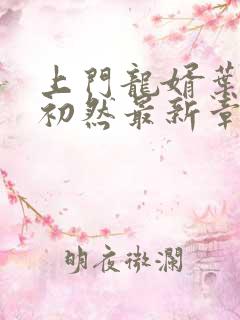 上門龍婿葉
初然最新章
明夜微瀾